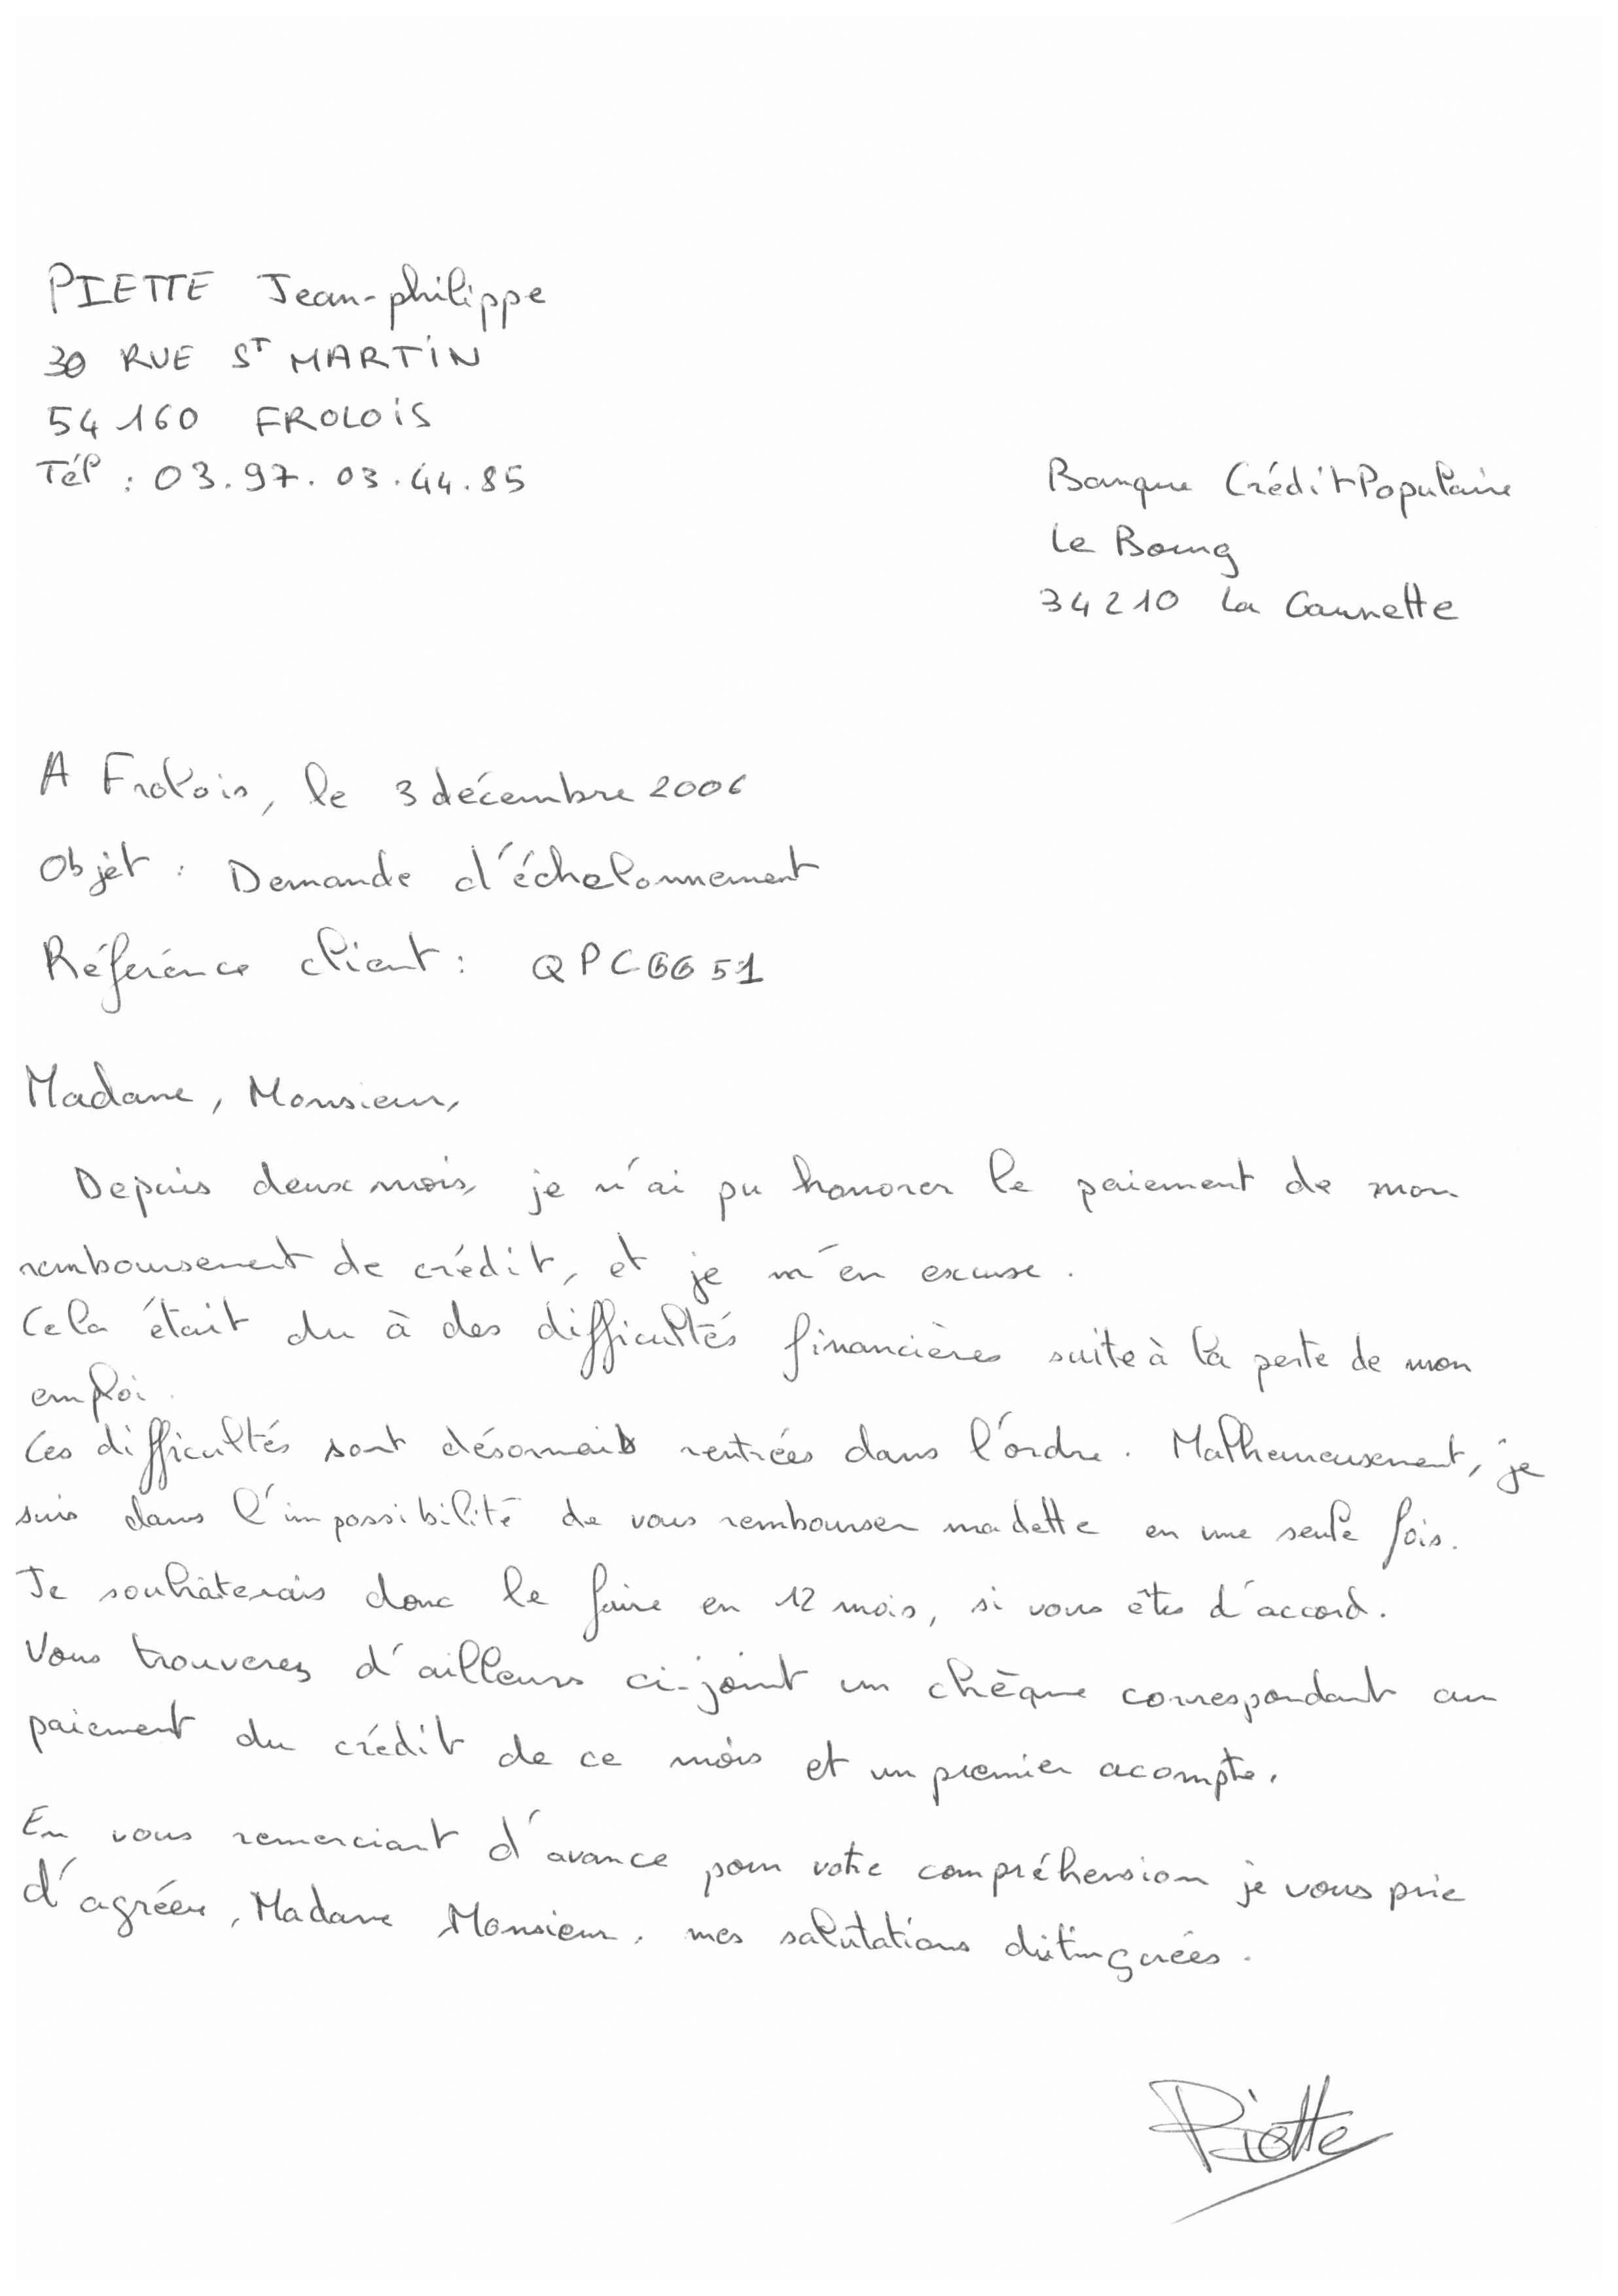 PIETTE Jean-philippe
30 RUE ST MARTIN
54160 FROLOIS
Tél : 03.97.03.44.85
Banque Crédit Populaire
Le Bourg
34210 La Caunette
A Frolois, le 3 décembre 2006
Objet : Demande d'échelonnement
Référence client : QPC6651
Madame, Monsieur,
Depuis deux mois, je n'ai pu honorer le paiement de mon
remboursement de crédit, et je m'en excuse.
Cela était du à des difficultés financières suite à la perte de mon
emploi.
Ces difficultés sont désormais rentrées dans l'ordre. Malheureusement, je
suis dans l'impossibilité de vous rembourser ma dette en une seule fois.
Je souhâterais donc le faire en 12 mois, si vous êtes d'accord.
Vous trouverez d'ailleurs ci-joint un chèque correspondant au
paiement du crédit de ce mois et un premier acompte.
En vous remerciant d'avance pour votre compréhension je vous prie
d'agréer, Madame Monsieur, mes salutations distinguées.
Piette